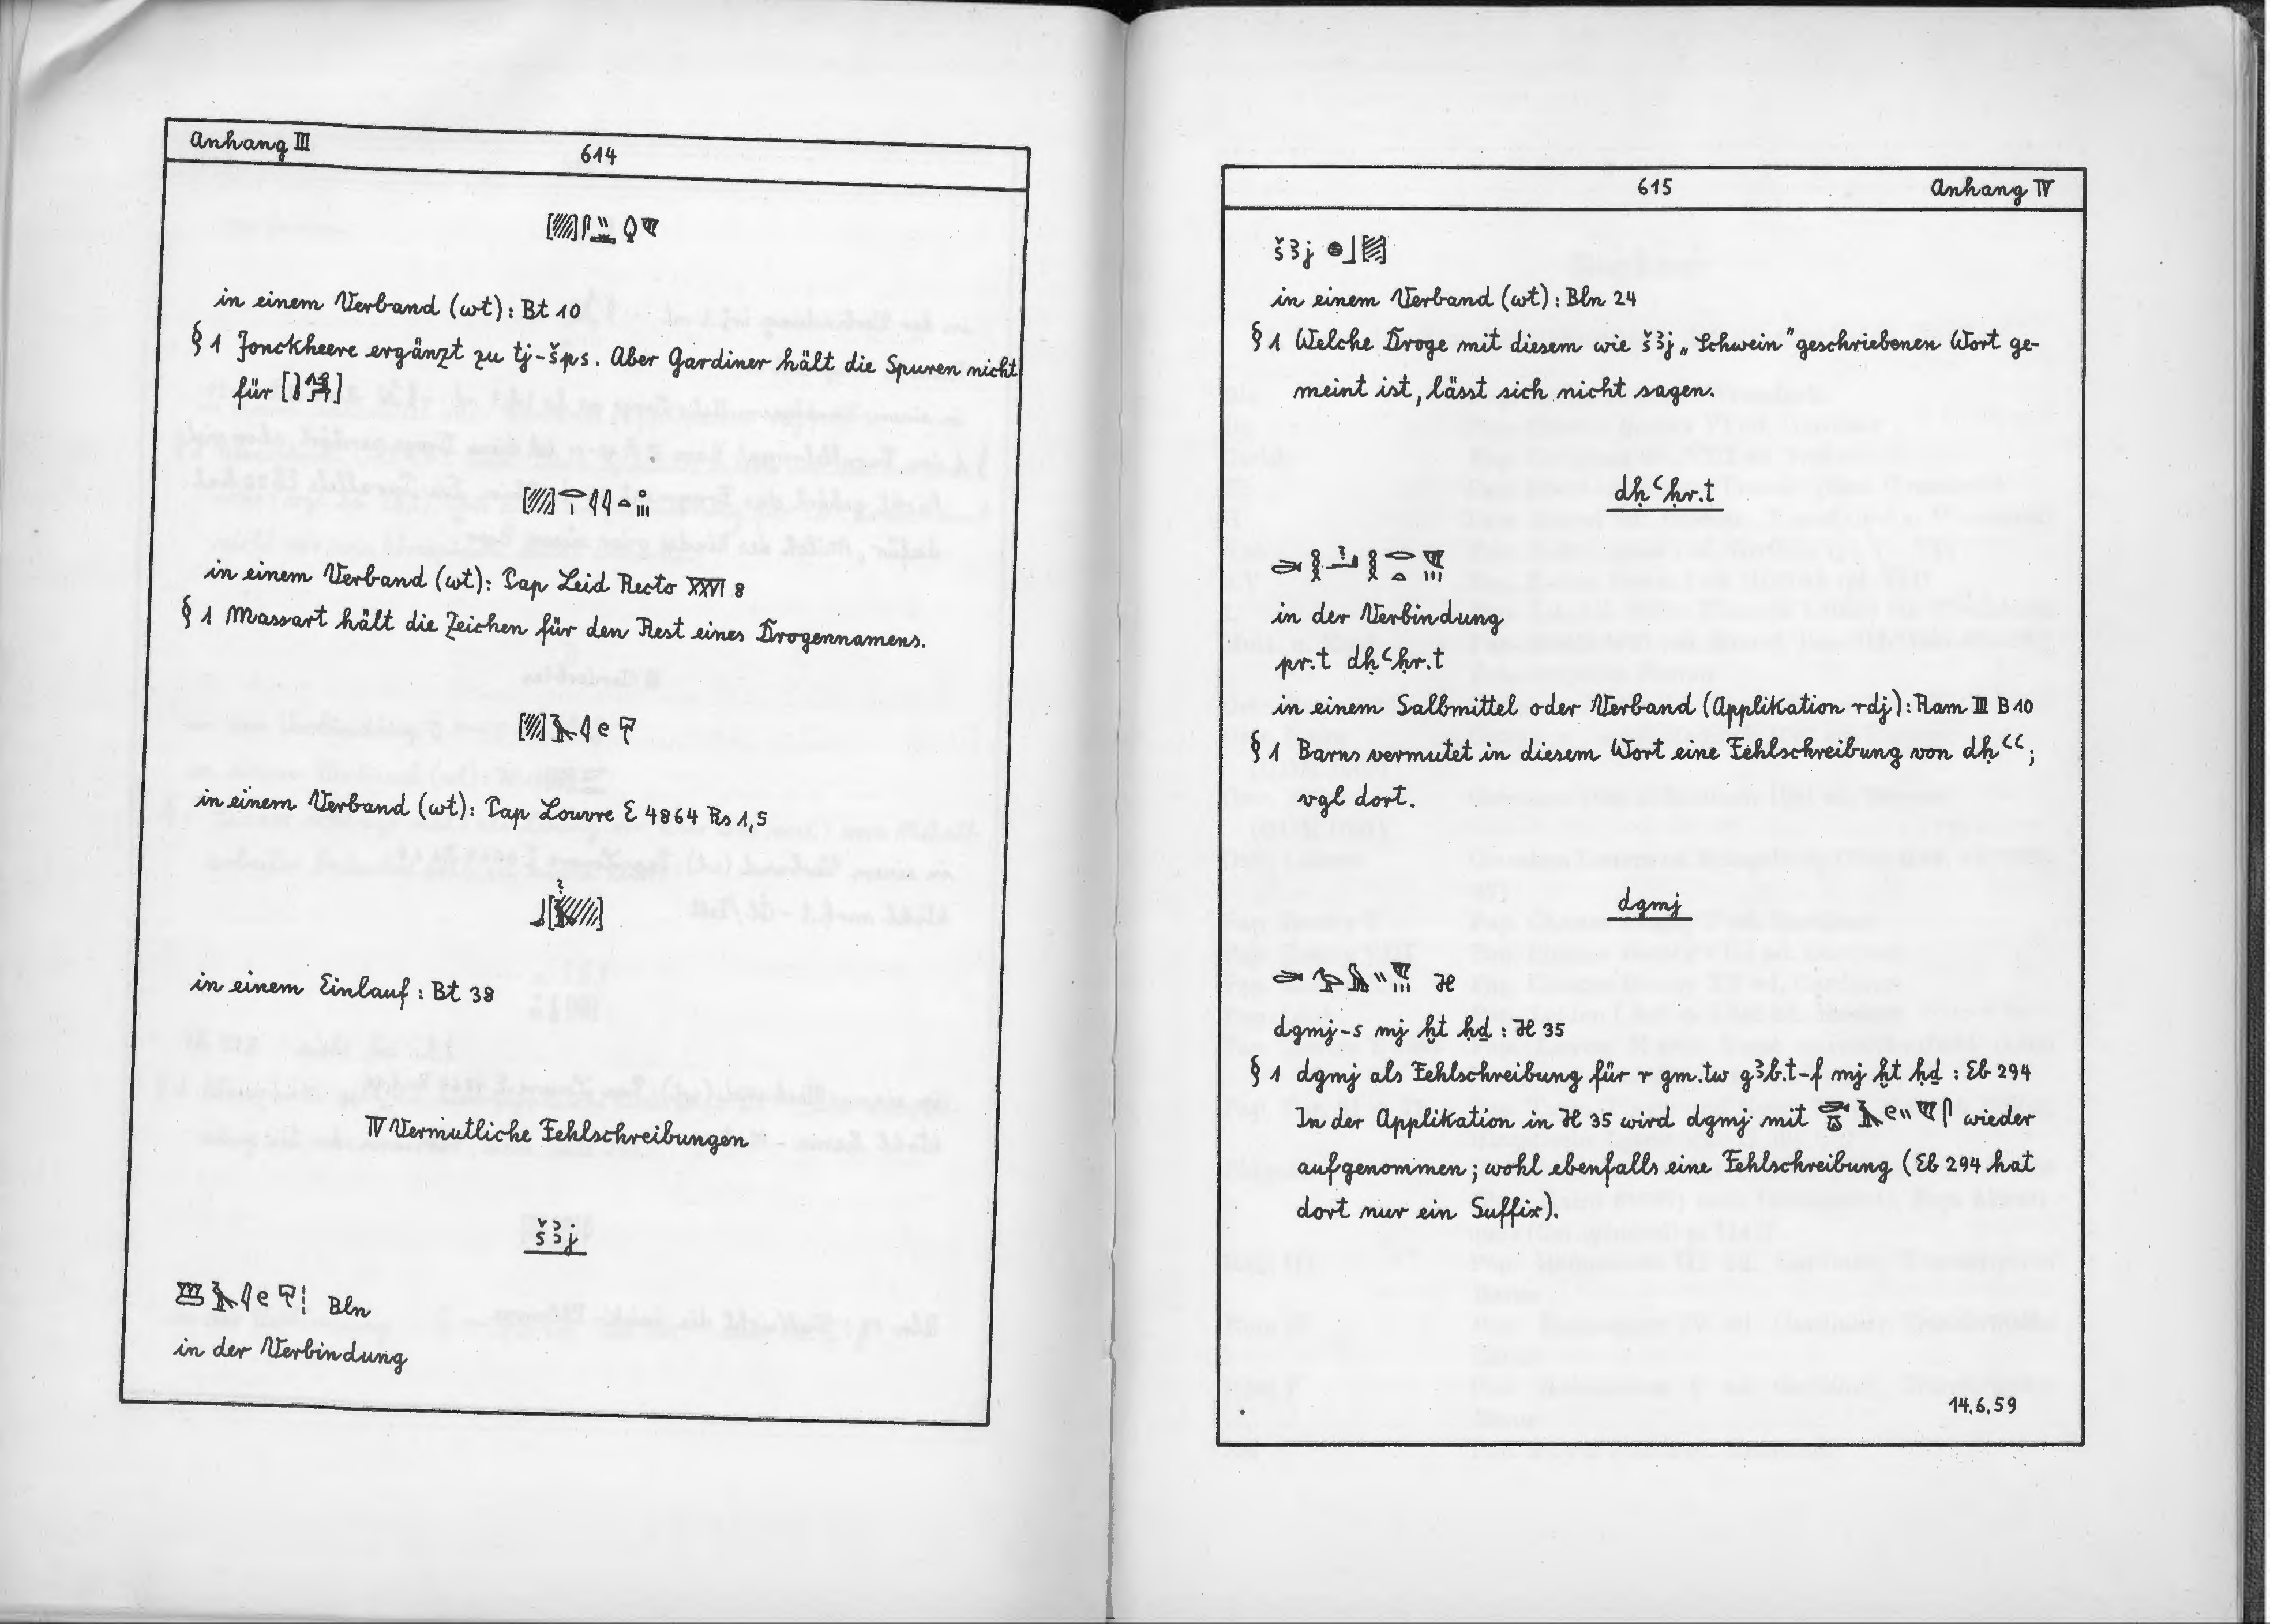 Anhang III
614
in einem Verband (wt): Bt 10
§ 1 Jonckheere ergänzt zu tj-šps. Aber Gardiner hält die Spuren nicht
für [ ]
in einem Verband (wt): Pap Leid Recto XXVI 8
§ 1 Massart hält die Zeichen für den Rest eines Drogennamens.
in einem Verband (wt): Pap Louvre E 4864 Rs 1,5
in einem Einlauf: Bt 38
IV Vermutliche Fehlschreibungen
šꜣj
Bln
in der Verbindung
615
Anhang IV
šꜣj
in einem Verband (wt): Bln 24
§ 1 Welche Droge mit diesem wie šꜣj „Schwein" geschriebenen Wort ge-
meint ist, lässt sich nicht sagen.
dḥꜥḥr.t
in der Verbindung
pr.t dḥꜥḥr.t
in einem Salbmittel oder Verband (Applikation rdj): Ram III B 10
§ 1 Barns vermutet in diesem Wort eine Fehlschreibung von dḥꜥꜥ;
vgl dort.
dgmj
H
dgmj-s mj ḫt ḥḏ: H 35
§ 1 dgmj als Fehlschreibung für r gm.tw gꜣb.t-f mj ḫt ḥḏ: Eb 294
In der Applikation in H 35 wird dgmj mit wieder
aufgenommen; wohl ebenfalls eine Fehlschreibung (Eb 294 hat
dort nur ein Suffix).
14.6.59